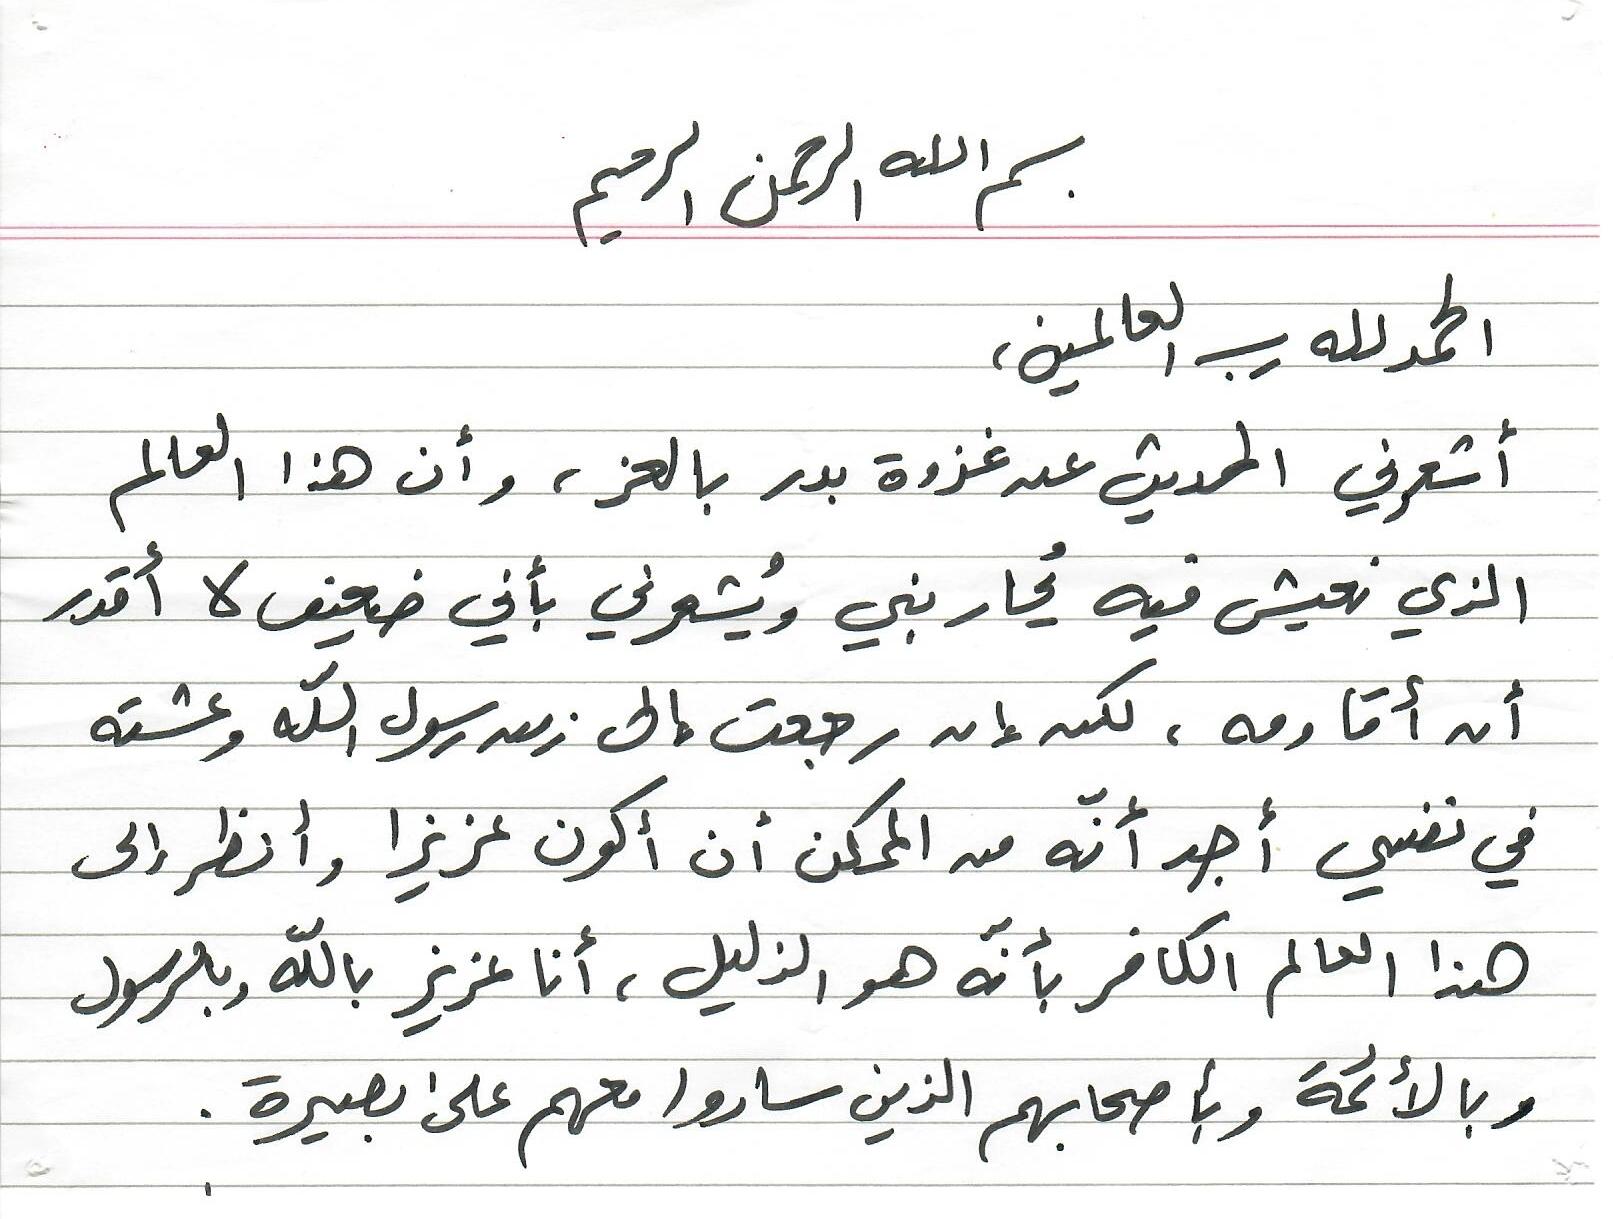 بسم الله الرحمن الرحيم
الحمد لله رب العالمين،
أشعرني الحديث عن غزوة بدر بالعز، وأن هذا العالم
الذي نعيش فيه يُحاربني ويُشعرني بأني ضعيف لا أقدر
أن أقاومه، لكن إن رجعت إلى زمن رسول اللّه وعشته
في نفسي أجد أنّه من الممكن أن أكون عزيزا وأنظر إلى
هذا العالم الكافر بأنّه هو الذليل، أنا عزيز باللّه وبالرسول
وبالأئمّة وبأصحابهم الذين ساروا معهم على بصيرة.